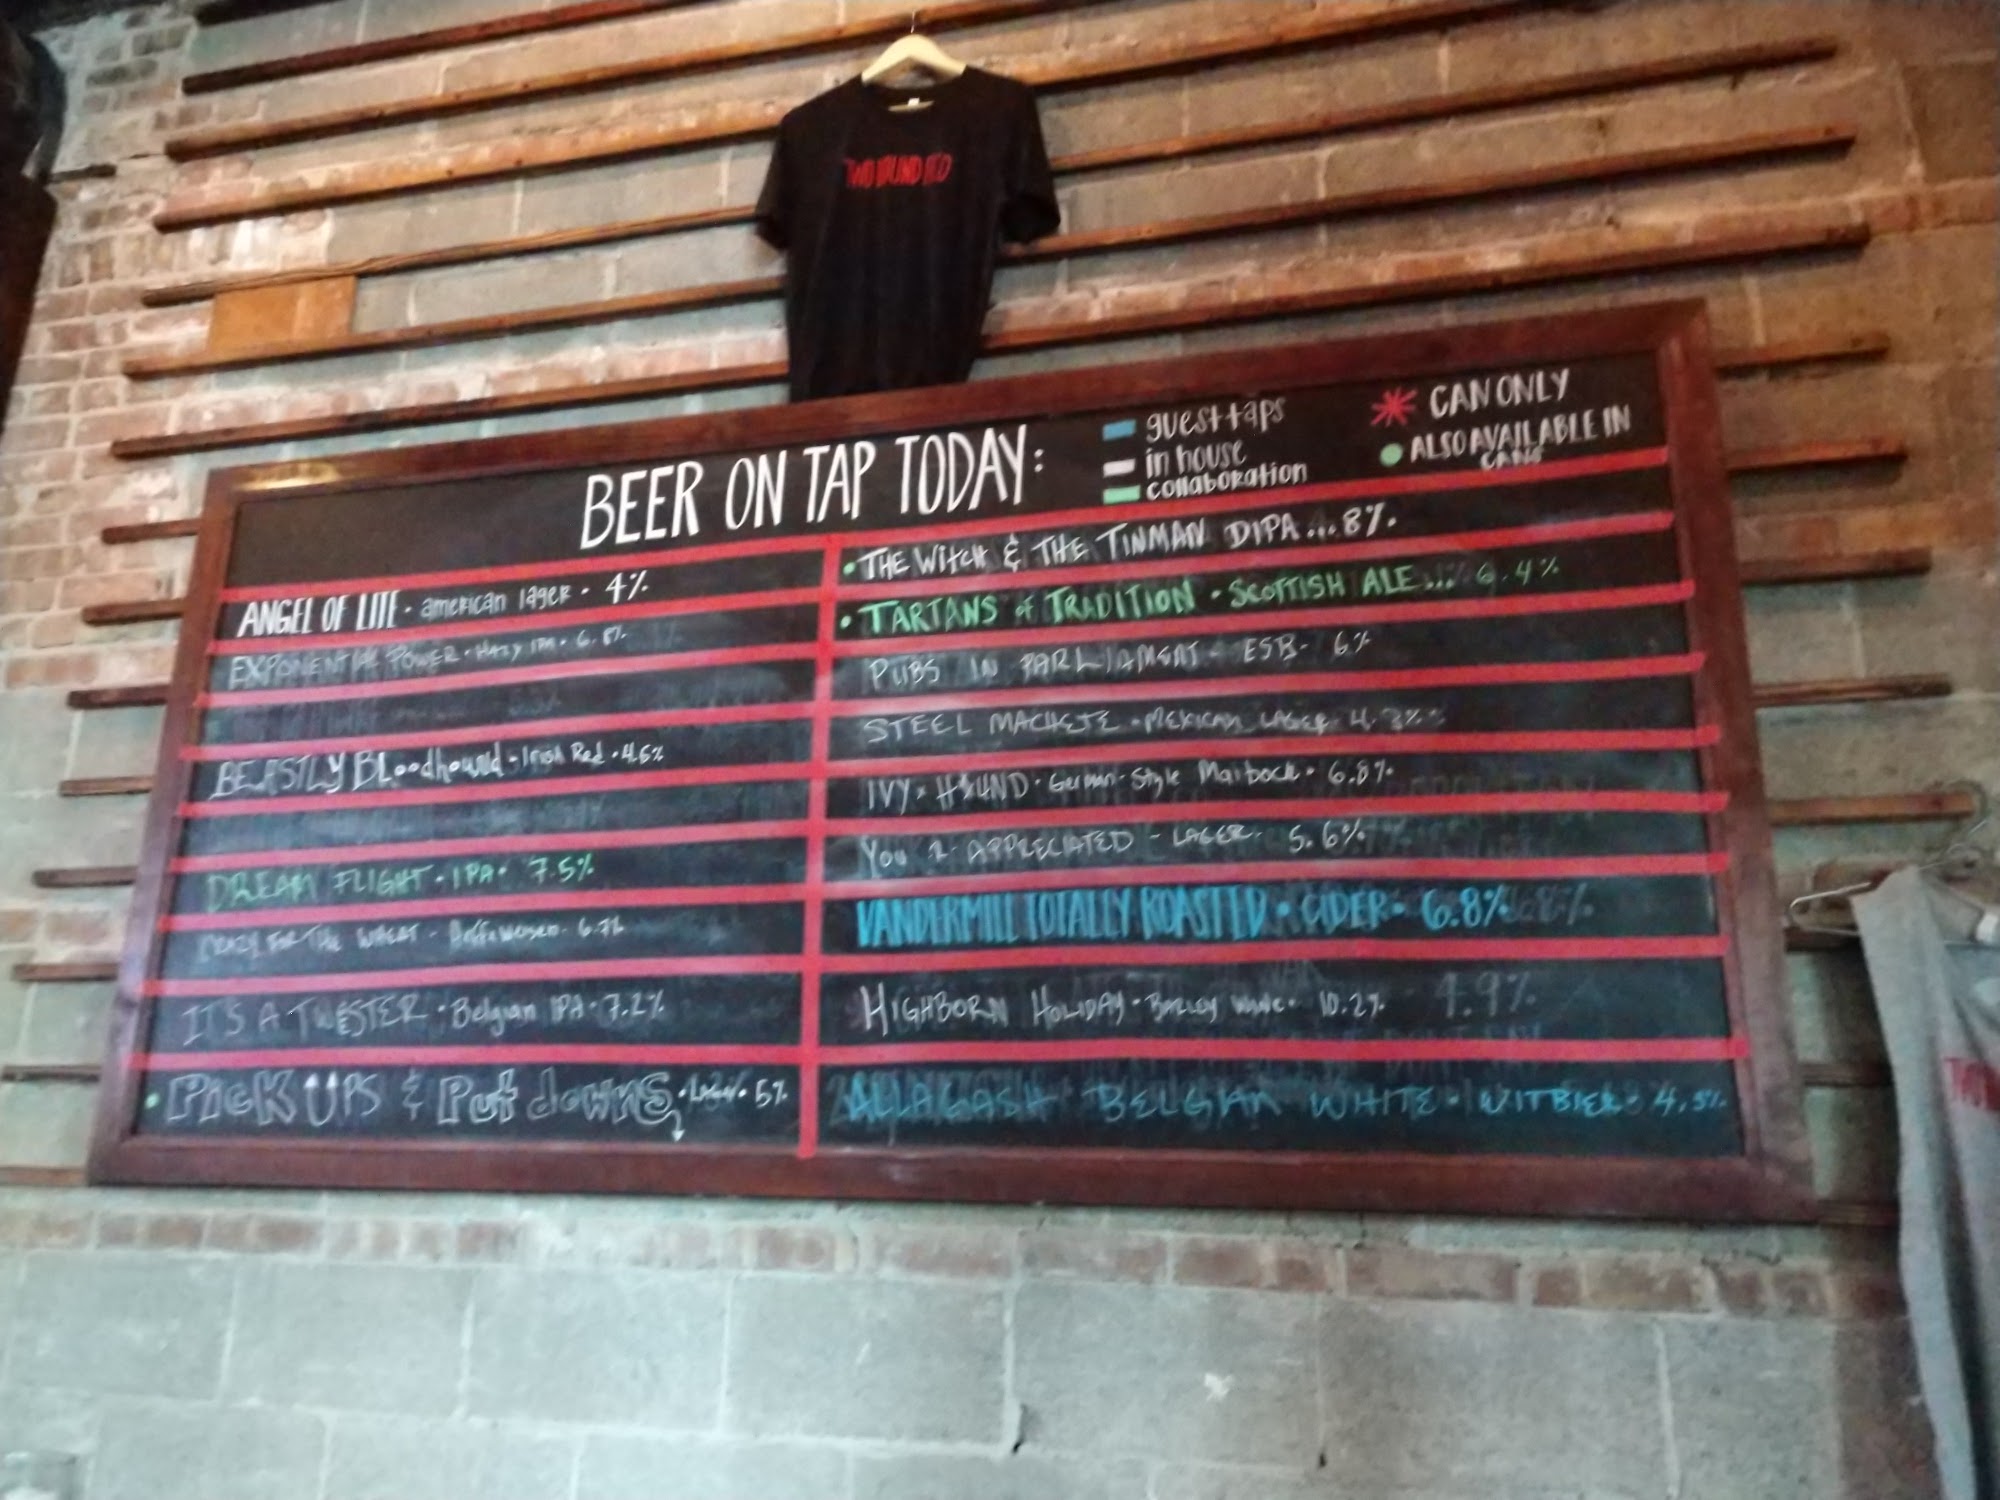 TWO HUNDRED
BEER ON TAP TODAY:
guest taps
in house
collaboration
CAN ONLY
ALSO AVAILABLE IN
CANS
ANGEL OF LITE · american lager · 4%
EXPONENTIAL POWER · HAZY IPA · 6.8%
BEASTLY BLoodhound · Irish Red · 4.6%
DREAM FLIGHT · IPA · 7.5%
CRAZY FOR THE WHEAT - 6.7%
IT'S A TWISTER · Belgian IPA · 7.2%
PICK UPS & Put downs · LAGER · 5%
· THE WITCH & THE TINMAN DIPA ... 8%
· TARTANS of TRADITION · SCOTTISH ALE ... 6.4%
PUBS IN PARLIAMENT - ESB - 6%
STEEL MACHETE · MEXICAN LAGER · 4.3%
IVY & HOUND · German-Style Maibock · 6.8%
YOU R APPRECIATED - LAGER - 5.6%
VANDERMILL TOTALLY ROASTED · CIDER · 6.8%
HIGHBORN HOLIDAY · BARLEY WINE · 10.2% 4.9%
ALLAGASH BELGIAN WHITE · WITBIER · 4.5%